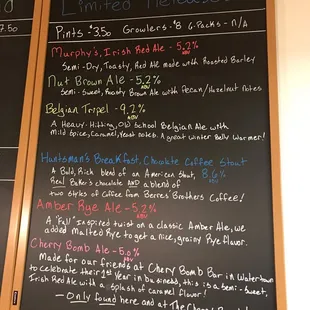 Limited Release
7.50
Pints - $3.50 Growlers - $8 6-Packs - N/A
Murphy's Irish Red Ale - 5.2% ABV
Semi-Dry, Toasty, Red Ale made with Roasted Barley
Nut Brown Ale - 5.2% ABV
Semi-Sweet, Roasty Brown Ale with Pecan/Hazelnut Notes
Belgian Tripel - 9.2% ABV
A Heavy-Hitting, Old School Belgian Ale with
Mild Spice, Caramel, Yeast notes. A great winter Belly Warmer!
Huntsman's Breakfast, Chocolate Coffee Stout
A Bold, Rich blend of an American Stout, 8.6% ABV
Real Baker's chocolate AND a blend of
two styles of Coffee from Berres Brothers Coffee!
Amber Rye Ale - 5.2% ABV
A "Fall" Inspired twist on a classic Amber Ale, we
added Malted Rye to get a nice, grainy Rye flavor.
Cherry Bomb Ale - 5.0% ABV
Made for our friends at Cherry Bomb Bar in Watertown
to Celebrate their 1st Year in business, this is a semi-sweet,
Irish Red Ale with a splash of caramel flavor!
- Only found here and at The Cherry